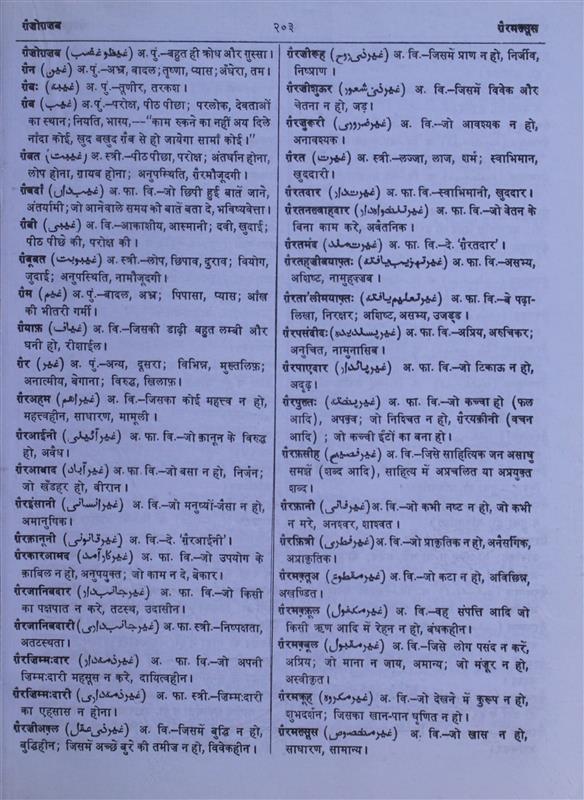 ग़ैज़ोग़ज़ब
२०३
ग़ैरमख़्सूस
ग़ैज़ोग़ज़ब (غیظوغضب) अ. पुं.–बहुत ही क्रोध और ग़ुस्सा।
ग़ैन (غین) अ. पुं.–अभ्र, बादल; तृष्णा, प्यास; अँधेरा, तम।
ग़ैबः (غیبہ) अ. पुं.–तूणीर, तरकश।
ग़ैब (غیب) अ. पुं.–परोक्ष, पीठ पीछा; परलोक, देवताओं
का स्थान; नियति, भाग्य,—“काम रुकने का नहीं अय दिले
नादां कोई, ख़ुद बख़ुद ग़ैब से हो जायेगा सामाँ कोई।”
ग़ैबत (غیبت) अ. स्त्री.–पीठ पीछा, परोक्ष; अंतर्धान होना,
लोप होना, ग़ायब होना; अनुपस्थिति, ग़ैरमौजूदगी।
ग़ैबदाँ (غیبداں) अ. फा. वि.–जो छिपी हुई बातें जाने,
अंतर्यामी; जो आनेवाले समय की बातें बता दे, भविष्यवेत्ता।
ग़ैबी (غیبی) अ. वि.–आकाशीय, आस्मानी; दैवी, ख़ुदाई;
पीठ पीछे की, परोक्ष की।
ग़ैबूबत (غیبوبت) अ. स्त्री.–लोप, छिपाव, दुराव; वियोग,
जुदाई; अनुपस्थिति, नामौजूदगी।
ग़ैम (غیم) अ. पुं.–बादल, अभ्र; पिपासा, प्यास; आँख
की भीतरी गर्मी।
ग़ैयाफ़ (غیاف) अ. वि.–जिसकी डाढ़ी बहुत लम्बी और
घनी हो, रीशाईल।
ग़ैर (غیر) अ. पुं.–अन्य, दूसरा; विभिन्न, मुस्तलिफ़;
अनात्मीय, बेगाना; विरुद्ध, ख़िलाफ़।
ग़ैरअहम (غیراہم) अ. वि.–जिसका कोई महत्त्व न हो,
महत्त्वहीन, साधारण, मामूली।
ग़ैरआईनी (غیرآئینی) अ. फा. वि.–जो क़ानून के विरुद्ध
हो, अवैध।
ग़ैरआबाद (غیرآباد) अ. फा. वि.–जो बसा न हो, निर्जन;
जो खँडहर हो, वीरान।
ग़ैरइंसानी (غیرانسانی) अ. वि.–जो मनुष्यों-जैसा न हो,
अमानुषिक।
ग़ैरक़ानूनी (غیرقانونی) अ. वि.–दे. ‘ग़ैरआईनी’।
ग़ैरकारआमद (غیرکارآمد) अ. फा. वि.–जो उपयोग के
क़ाबिल न हो, अनुपयुक्त; जो काम न दे, बेकार।
ग़ैरजानिबदार (غیرجانبدار) अ. फा. वि.–जो किसी
का पक्षपात न करे, तटस्थ, उदासीन।
ग़ैरजानिबदारी (غیرجانبداری) अ. फा. स्त्री.–निष्पक्षता,
अतटस्थता।
ग़ैरज़िम्मःदार (غیرذمہدار) अ. फा. वि.–जो अपनी
ज़िम्मःदारी महसूस न करे, दायित्वहीन।
ग़ैरज़िम्मःदारी (غیرذمہداری) अ. फा. स्त्री.–ज़िम्मःदारी
का एहसास न होना।
ग़ैरज़ीअक़्ल (غیرذی عقل) अ. वि.–जिसमें बुद्धि न हो,
बुद्धिहीन; जिसमें अच्छे बुरे की तमीज़ न हो, विवेकहीन।
ग़ैरज़ीरूह (غیرذی روح) अ. वि.–जिसमें प्राण न हो, निर्जीव,
निष्प्राण।
ग़ैरज़ीशुऊर (غیرذی شعور) अ. वि.–जिसमें विवेक और
चेतना न हो, जड़।
ग़ैरज़ुरूरी (غیرضروری) अ. वि.–जो आवश्यक न हो,
अनावश्यक।
ग़ैरत (غیرت) अ. स्त्री.–लज्जा, लाज, शर्म; स्वाभिमान,
ख़ुददारी।
ग़ैरतदार (غیرتدار) अ. फा. वि.–स्वाभिमानी, ख़ुददार।
ग़ैरतनख़्वाहदार (غیرتنخواہدار) अ. फा. वि.–जो वेतन के
बिना काम करे, अवैतनिक।
ग़ैरतमंद (غیرت مند) अ. फा. वि.–दे. ‘ग़ैरतदार’।
ग़ैरतहज़ीबयाफ़्तः (غیرتہذیب یافتہ) अ. फा. वि.–असभ्य,
अशिष्ट, नामुहज़्ज़ब।
ग़ैरता'लीमयाफ़्तः (غیرتعلیم یافتہ) अ. फा. वि.–बे पढ़ा-
लिखा, निरक्षर; अशिष्ट, असभ्य, उजड्ड।
ग़ैरपसंदीदः (غیرپسندیدہ) अ. फा. वि.–अप्रिय, अरुचिकर;
अनुचित, नामुनासिब।
ग़ैरपाएदार (غیرپائدار) अ. फा. वि.–जो टिकाऊ न हो,
अदृढ़।
ग़ैरपुख़्तः (غیرپختہ) अ. फा. वि.–जो कच्चा हो (फल
आदि), अपक्व; जो निश्चित न हो, ग़ैरयक़ीनी (वचन
आदि) ; जो कच्ची ईंटों का बना हो।
ग़ैरफ़सीह (غیرفصیح) अ. वि.–जिसे साहित्यिक जन असाधु
समझें (शब्द आदि), साहित्य में अप्रचलित या अप्रयुक्त
शब्द।
ग़ैरफ़ानी (غیرفانی) अ. वि.–जो कभी नष्ट न हो, जो कभी
न मरे, अनश्वर, शाश्वत।
ग़ैरफ़ित्री (غیرفطری) अ. वि.–जो प्राकृतिक न हो, अनैसर्गिक,
अप्राकृतिक।
ग़ैरमक़्तूअ (غیرمقطوع) अ. वि.–जो कटा न हो, अविछिन्न,
अखण्डित।
ग़ैरमक़्फ़ूल (غیرمکفول) अ. वि.–वह संपत्ति आदि जो
किसी ऋण आदि में रेहन न हो, बंधकहीन।
ग़ैरमक़्बूल (غیرمقبول) अ. वि.–जिसे लोग पसंद न करें,
अप्रिय; जो माना न जाय, अमान्य; जो मंज़ूर न हो,
अस्वीकृत।
ग़ैरमक्रूह (غیرمکروہ) अ. वि.–जो देखने में कुरूप न हो,
शुभदर्शन; जिसका खान-पान घृणित न हो।
ग़ैरमख़्सूस (غیرمخصوص) अ. वि.–जो ख़ास न हो,
साधारण, सामान्य।